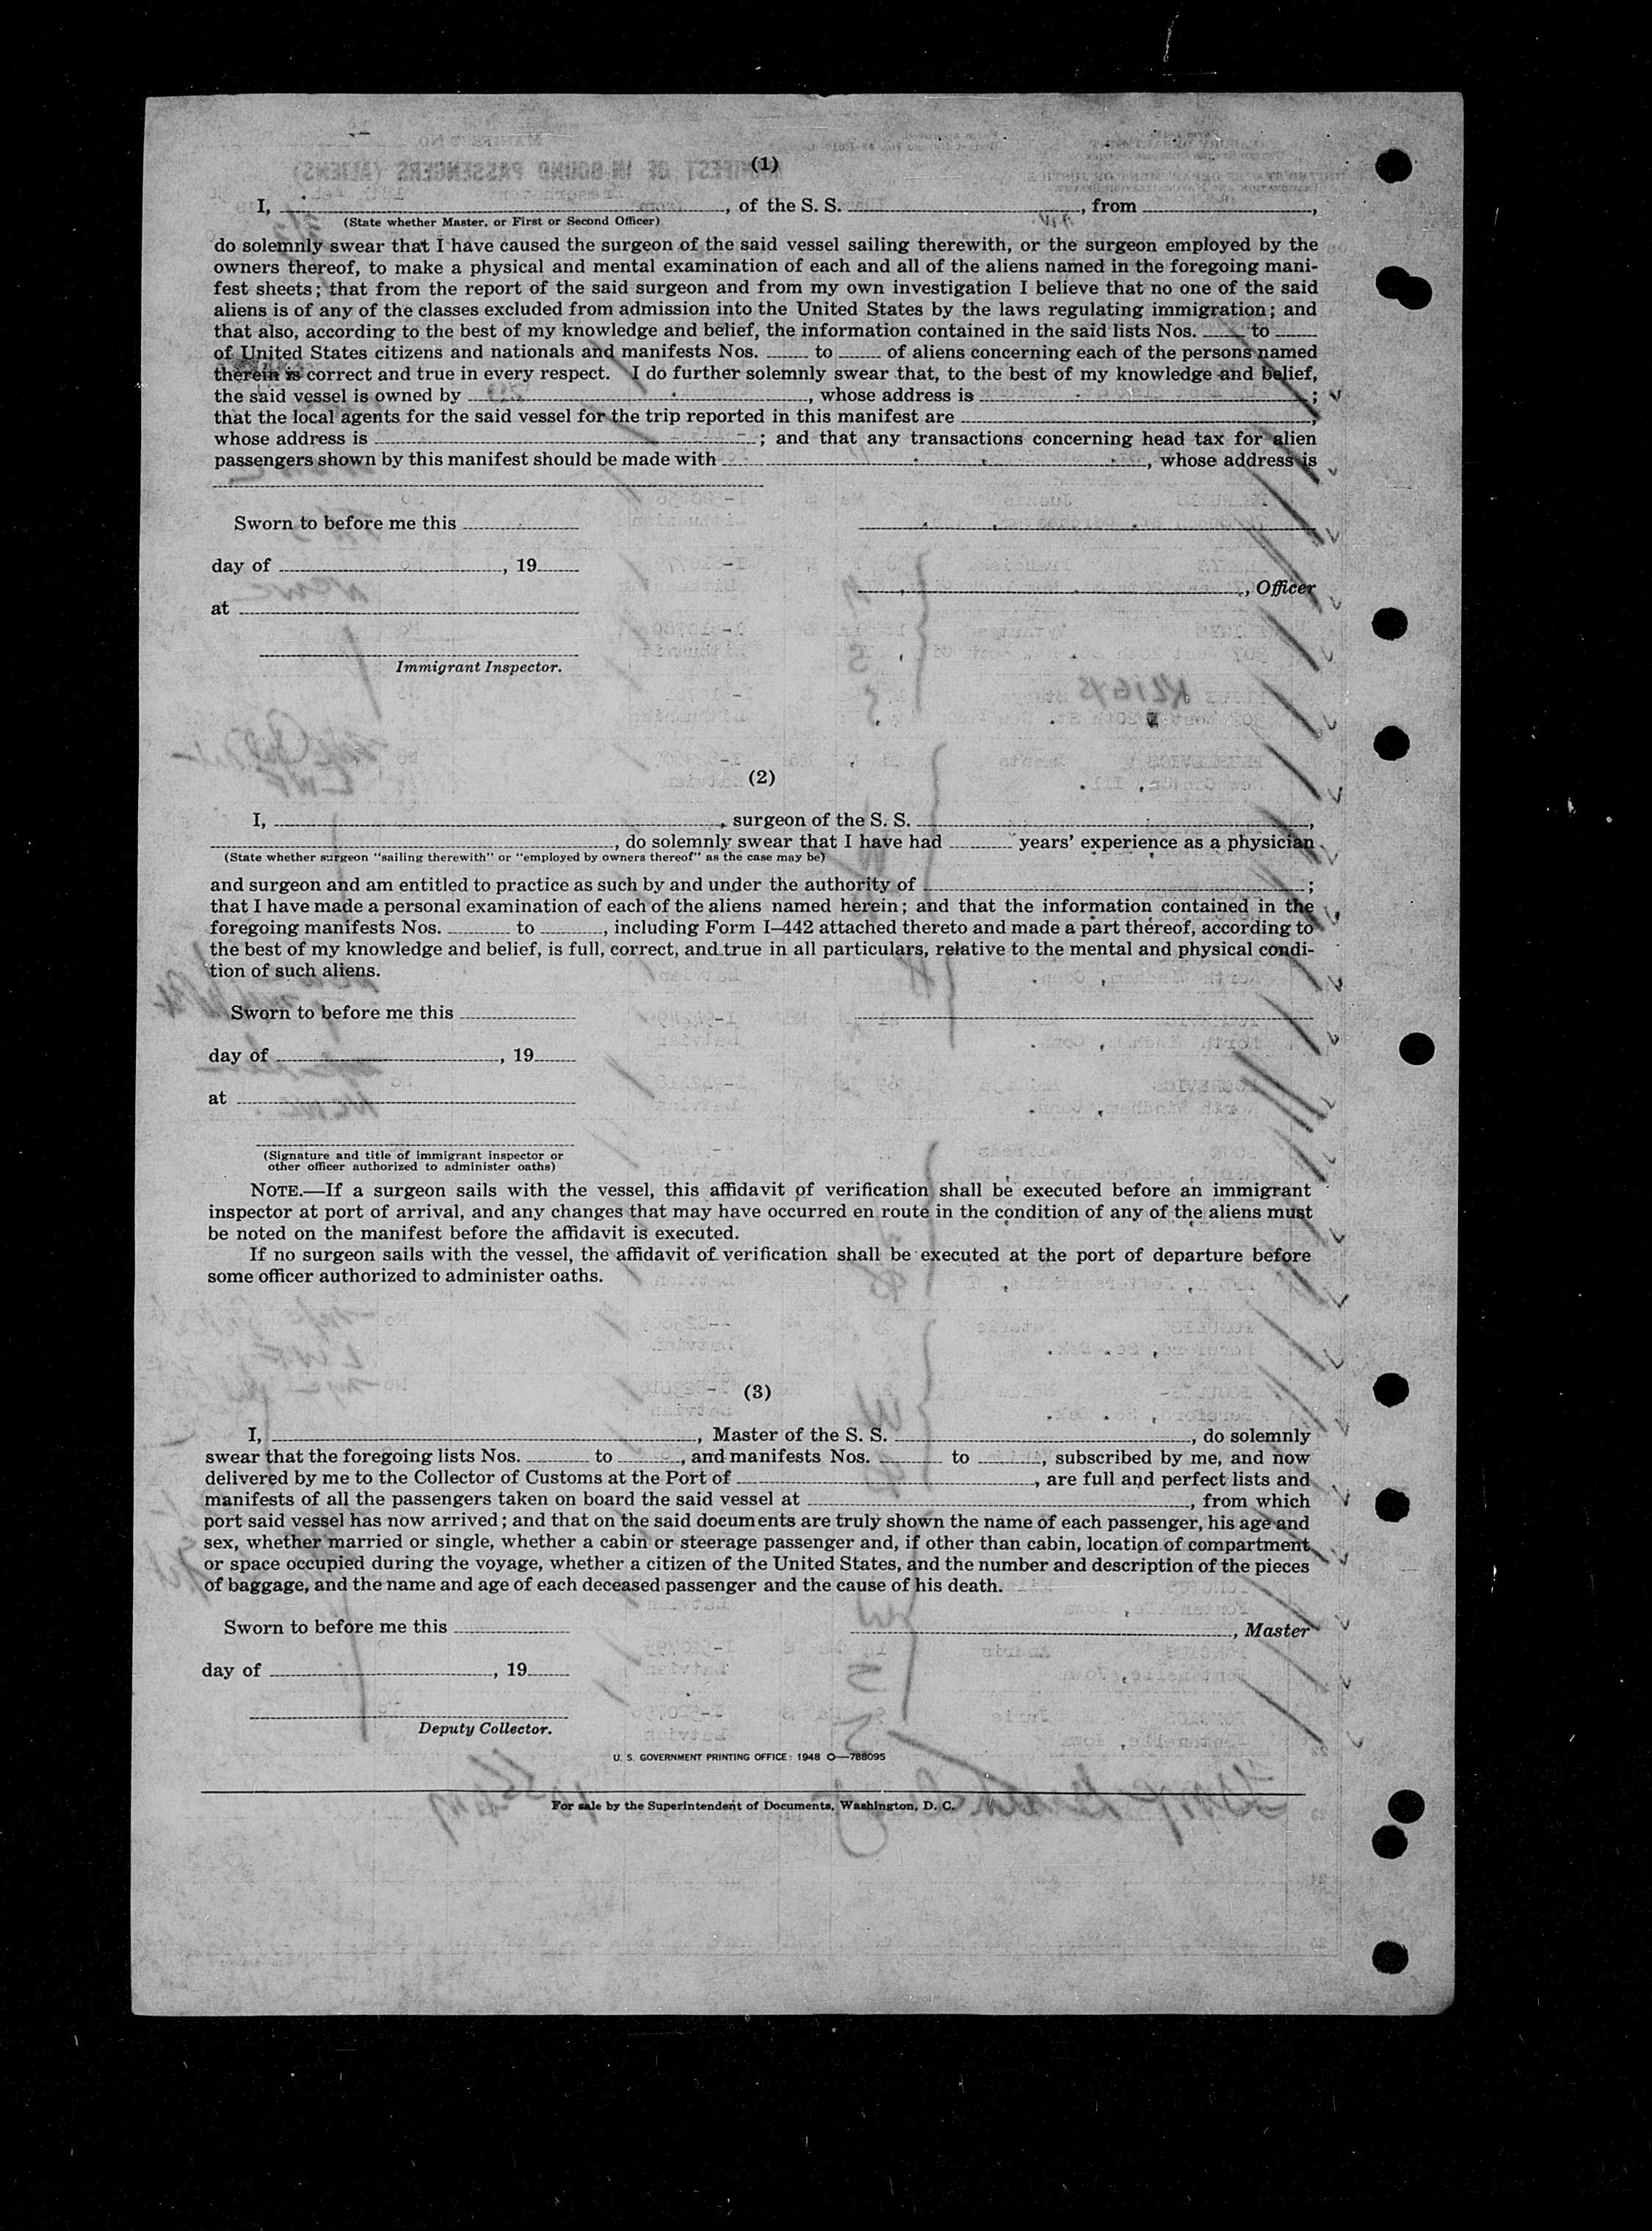 (1)
I, ........................................, of the S. S. ........................................, from ....................,
(State whether Master, or First or Second Officer)
do solemnly swear that I have caused the surgeon of the said vessel sailing therewith, or the surgeon employed by the
owners thereof, to make a physical and mental examination of each and all of the aliens named in the foregoing mani-
fest sheets; that from the report of the said surgeon and from my own investigation I believe that no one of the said
aliens is of any of the classes excluded from admission into the United States by the laws regulating immigration; and
that also, according to the best of my knowledge and belief, the information contained in the said lists Nos. ........ to ........
of United States citizens and nationals and manifests Nos. ........ to ........ of aliens concerning each of the persons named
therein is correct and true in every respect. I do further solemnly swear that, to the best of my knowledge and belief,
the said vessel is owned by ........................................, whose address is ........................................;
that the local agents for the said vessel for the trip reported in this manifest are ........................................,
whose address is ........................................; and that any transactions concerning head tax for alien
passengers shown by this manifest should be made with ........................................, whose address is
........................................
Sworn to before me this ....................
day of ........................................, 19........
........................................, Officer
at ........................................
Immigrant Inspector.
KLIGYS
(2)
I, ........................................, surgeon of the S. S. ........................................,
........................................, do solemnly swear that I have had ............ years' experience as a physician
(State whether surgeon "sailing therewith" or "employed by owners thereof" as the case may be)
and surgeon and am entitled to practice as such by and under the authority of ........................................;
that I have made a personal examination of each of the aliens named herein; and that the information contained in the
foregoing manifests Nos. ............ to ............, including Form I–442 attached thereto and made a part thereof, according to
the best of my knowledge and belief, is full, correct, and true in all particulars, relative to the mental and physical condi-
tion of such aliens.
Sworn to before me this ....................
day of ........................................, 19........
at ........................................
(Signature and title of immigrant inspector or
other officer authorized to administer oaths)
NOTE.—If a surgeon sails with the vessel, this affidavit of verification shall be executed before an immigrant
inspector at port of arrival, and any changes that may have occurred en route in the condition of any of the aliens must
be noted on the manifest before the affidavit is executed.
If no surgeon sails with the vessel, the affidavit of verification shall be executed at the port of departure before
some officer authorized to administer oaths.
(3)
I, ........................................, Master of the S. S. ........................................, do solemnly
swear that the foregoing lists Nos. ............ to ............, and manifests Nos. ............ to ............, subscribed by me, and now
delivered by me to the Collector of Customs at the Port of ........................................, are full and perfect lists and
manifests of all the passengers taken on board the said vessel at ........................................, from which
port said vessel has now arrived; and that on the said documents are truly shown the name of each passenger, his age and
sex, whether married or single, whether a cabin or steerage passenger and, if other than cabin, location of compartment
or space occupied during the voyage, whether a citizen of the United States, and the number and description of the pieces
of baggage, and the name and age of each deceased passenger and the cause of his death.
Sworn to before me this ....................
........................................, Master
day of ........................................, 19........
Deputy Collector.
U. S. GOVERNMENT PRINTING OFFICE: 1948 O—788095
For sale by the Superintendent of Documents, Washington, D. C.